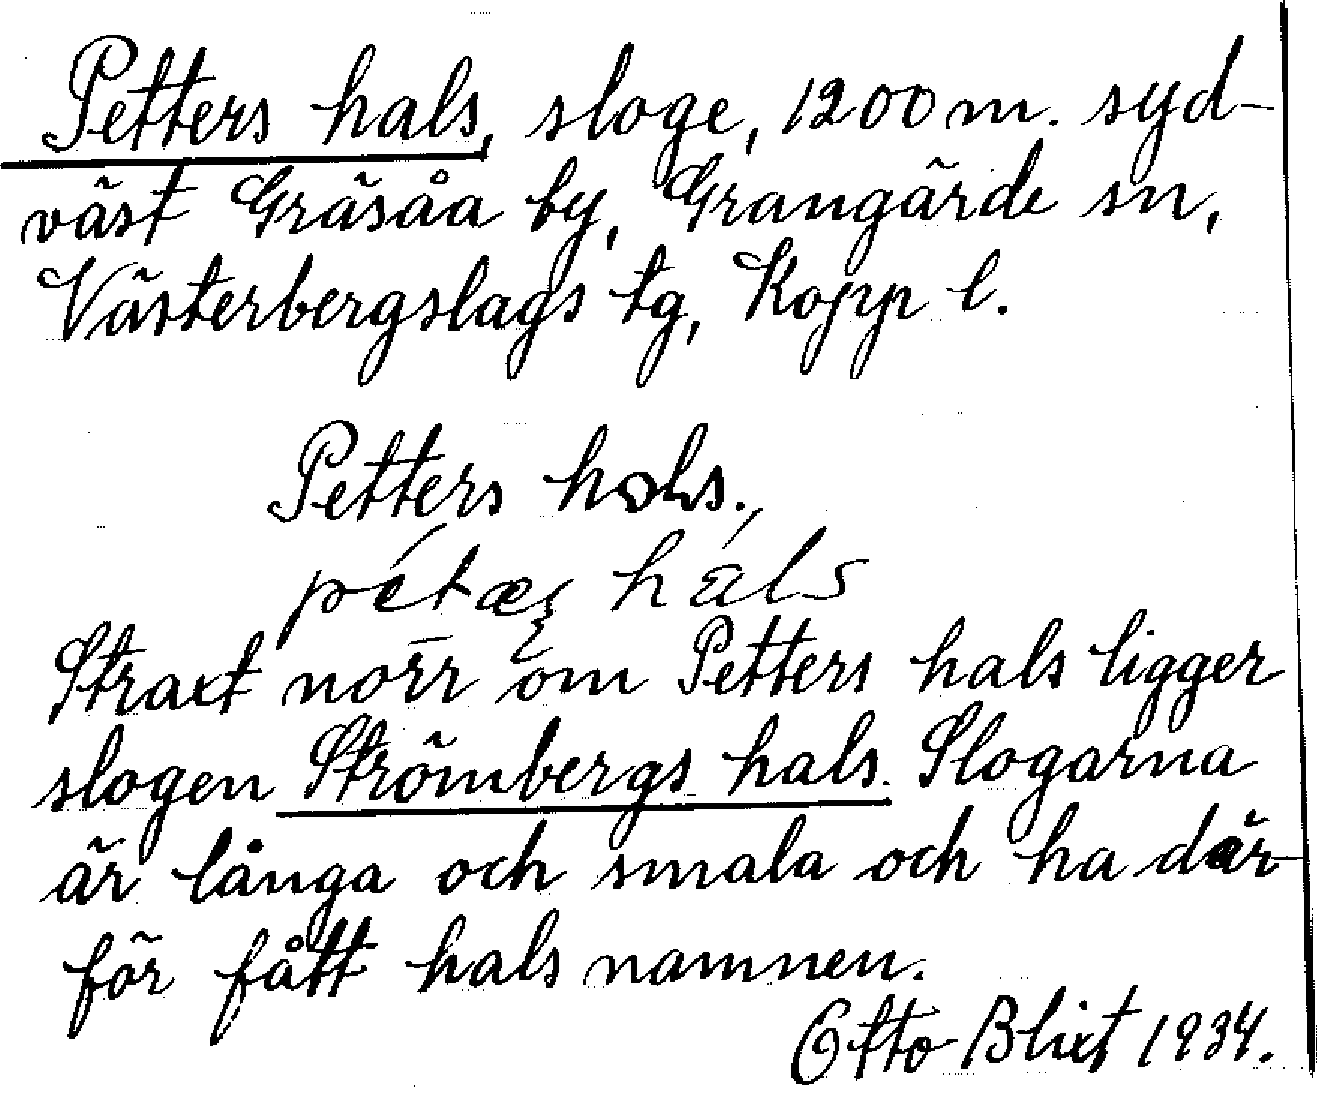 Petters hals, sloge, 1200 m. syd-
väst Gräsåa by, Grangärde sn,
Västerbergslags tg, Kopp l.
Petters hals.
pétæʂ háls
Straxt norr om Petters hals ligger
slogen Strömbergs hals. Slogarna
är långa och smala och ha där-
för fått hals namnen.
Otto Blixt 1934.